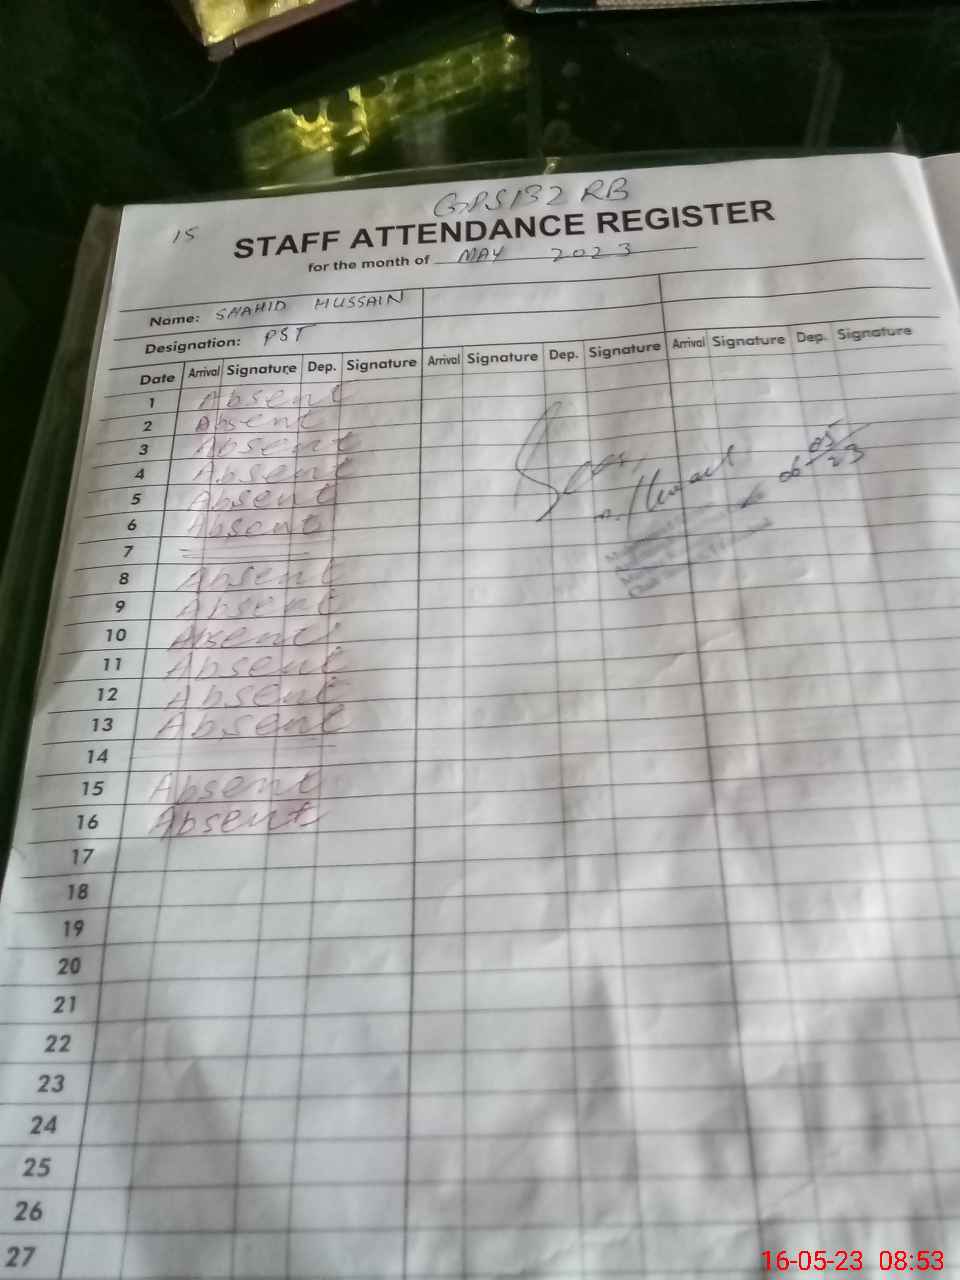 GPS 132 RB
15
STAFF ATTENDANCE REGISTER
for the month of MAY 2023
Name: SHAHID HUSSAIN
Designation: PST
Date Arrival Signature Dep. Signature Arrival Signature Dep. Signature Arrival Signature Dep. Signature
1 Absent
2 Absent
3 Absent
4 Absent
5 Absent
6 Absent
7
8 Absent
9 Absent
10 Absent
11 Absent
12 Absent
13 Absent
14
15 Absent
16 Absent
17
18
19
20
21
22
23
24
25
26
27
16-05-23 08:53